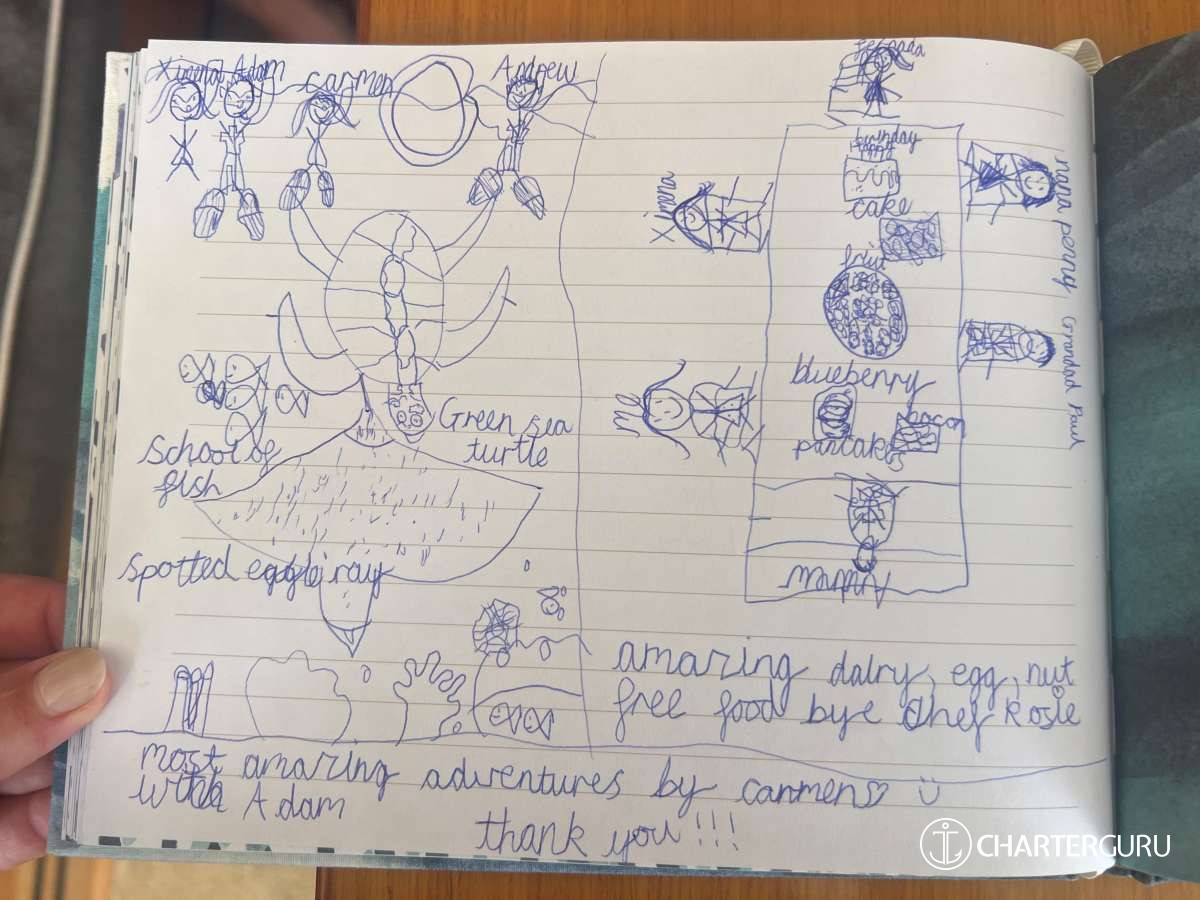 Ximena Adam
Carmen
Andrew
Green sea
turtle
School of
fish
spotted eagle ray
birthday
happy
cake
fruit
blueberry
pancakes
bacon
Ximena
me
nana penny
Grandad Paul
Andrew
amazing dairy, egg, nut
free food bye chef Rosie
most amazing adventures by carmen
with Adam
thank you!!!
CHARTERGURU